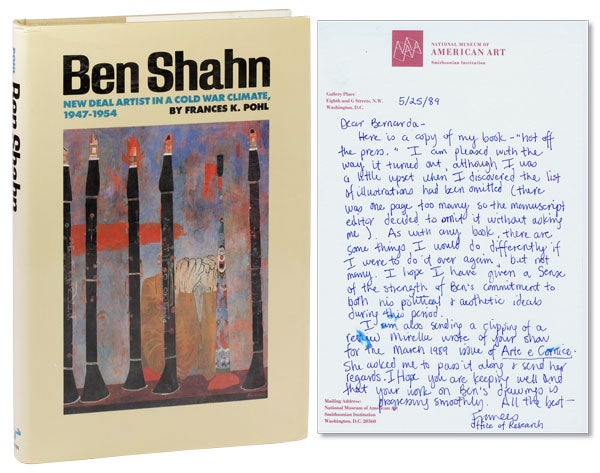 POHL
Ben Shahn
Ben Shahn
NEW DEAL ARTIST IN A COLD WAR CLIMATE,
1947-1954
BY FRANCES K. POHL
NMAA
NATIONAL MUSEUM OF
AMERICAN ART
Smithsonian Institution
Gallery Place
Eighth and G Streets, N.W.
Washington, D.C.
5/25/89
Dear Bernarda-
Here is a copy of my book - "hot off
the press." I am pleased with the
way it turned out, although I was
a little upset when I discovered the list
of illustrations had been omitted (there
was one page too many so the manuscript
editor decided to omit it without asking
me). As with any book, there are
some things I would do differently if
I were to do it over again, but not
many. I hope I have given a sense
of the strength of Ben's commitment to
both his political & aesthetic ideals
during this period.
I am also sending a clipping of a
review Mirella wrote of your show
for the March 1989 issue of Arte e Cornice.
She asked me to pass it along & send her
regards. I hope you are keeping well and
that your work on Ben's drawings is
progressing smoothly. All the best-
Frances
Office of Research
Mailing Address:
National Museum of American Art
Smithsonian Institution
Washington, D.C. 20560